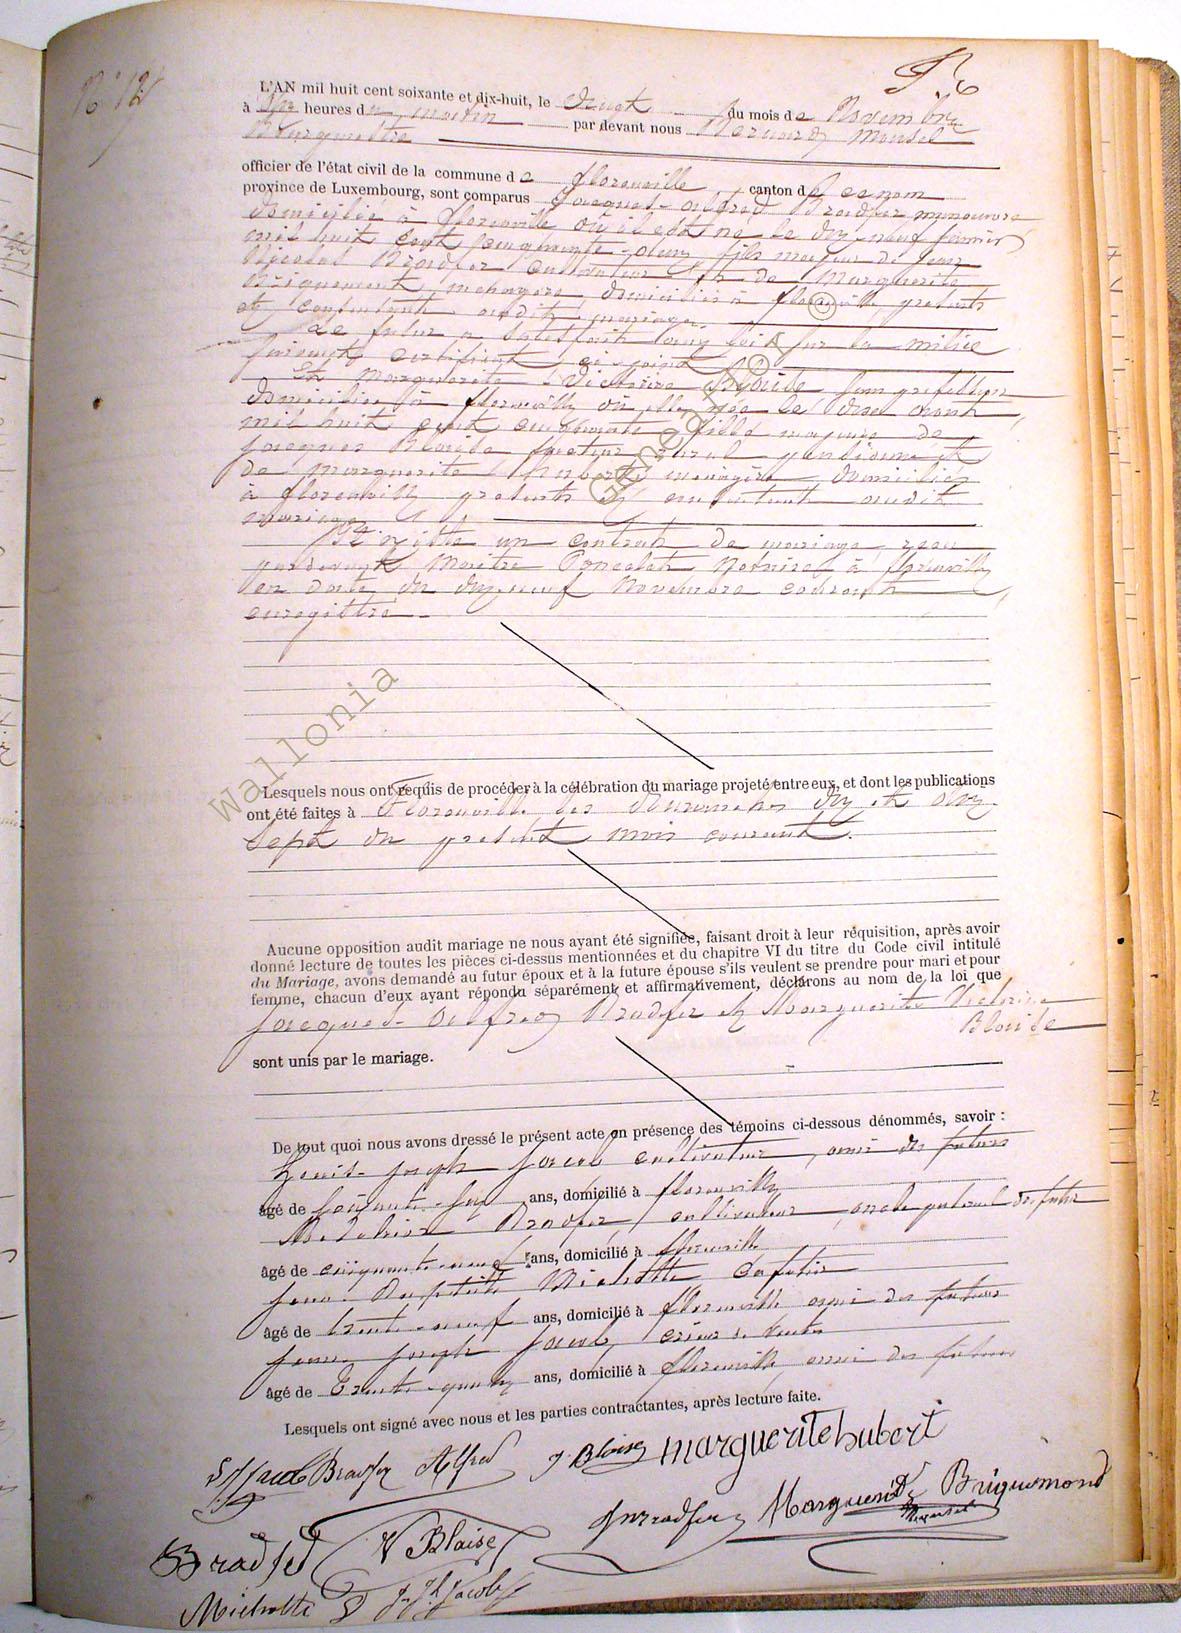 N° 12
L'AN mil huit cent soixante et dix-huit, le vingt du mois de Novembre
à dix heures du matin par devant nous Bernard Mousel
Bourgmestre
officier de l'état civil de la commune de Florenville, canton de ce nom
province de Luxembourg, sont comparus Jacques-Alfred Bradfer manouvre
domicilié à Florenville où il est né le dix neuf février
mil huit cent cinquante-deux, fils majeur de Jean
Nicolas Bradfer cultivateur et de Marguerite
Briquemont, ménagère, domiciliés à Florenville, présents
et consentants audit mariage.
Le futur a satisfait aux lois sur la milice
suivant certificat ci-joint
Et Marguerite Victorine Blaise sans profession
domiciliée à Florenville où elle née le
mil huit cent cinquante fille majeure de
Jacques Blaise facteur rural pensionné et
de Marguerite Hubert, ménagère, domiciliés
à Florenville présents et consentants audit
mariage
Il existe un contrat de mariage reçu
par devant Maître Poncelet Notaire à Florenville
en date du dix neuf Novembre courant
enregistré.
Lesquels nous ont requis de procéder à la célébration du mariage projeté entre eux, et dont les publications
ont été faites à Florenville les dimanches dix et dix-
sept du présent mois courant.
Aucune opposition audit mariage ne nous ayant été signifiée, faisant droit à leur réquisition, après avoir
donné lecture de toutes les pièces ci-dessus mentionnées et du chapitre VI du titre du Code civil intitulé
du Mariage, avons demandé au futur époux et à la future épouse s'ils veulent se prendre pour mari et pour
femme, chacun d'eux ayant répondu séparément et affirmativement, déclarons au nom de la loi que
Jacques-Alfred Bradfer et Marguerite Victorine
Blaise
sont unis par le mariage.
De tout quoi nous avons dressé le présent acte en présence des témoins ci-dessous dénommés, savoir :
Louis-Joseph Jacob cultivateur, ami des futurs
âgé de soixante-six ans, domicilié à Florenville
Melchior Bradfer, cultivateur, oncle paternel du futur
âgé de cinquante-neuf ans, domicilié à Florenville
Jean-Baptiste Michotte cafetier
âgé de trente-neuf ans, domicilié à Florenville ami des futurs
Jean Joseph Jacob, crieur de ventes
âgé de trente-quatre ans, domicilié à Florenville, ami des futurs
Lesquels ont signé avec nous et les parties contractantes, après lecture faite.
Jacob Bradfer Alfred J. Blaise marguerite hubert
JNBradfer Marguerite Briquemond
Mousel
Bradfer V Blaise
Michotte Jacob
wallonia
Généa
©